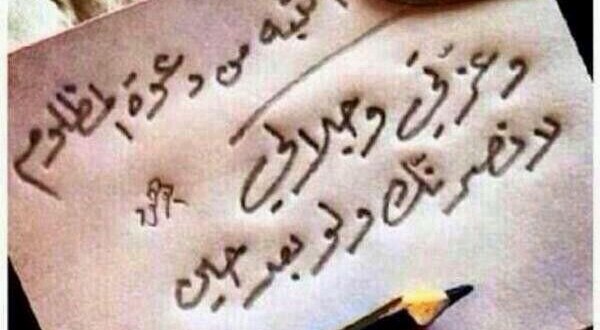 انتبه من دعوة المظلوم
وعزتي وجلالي
لانصرنك ولو بعد حين